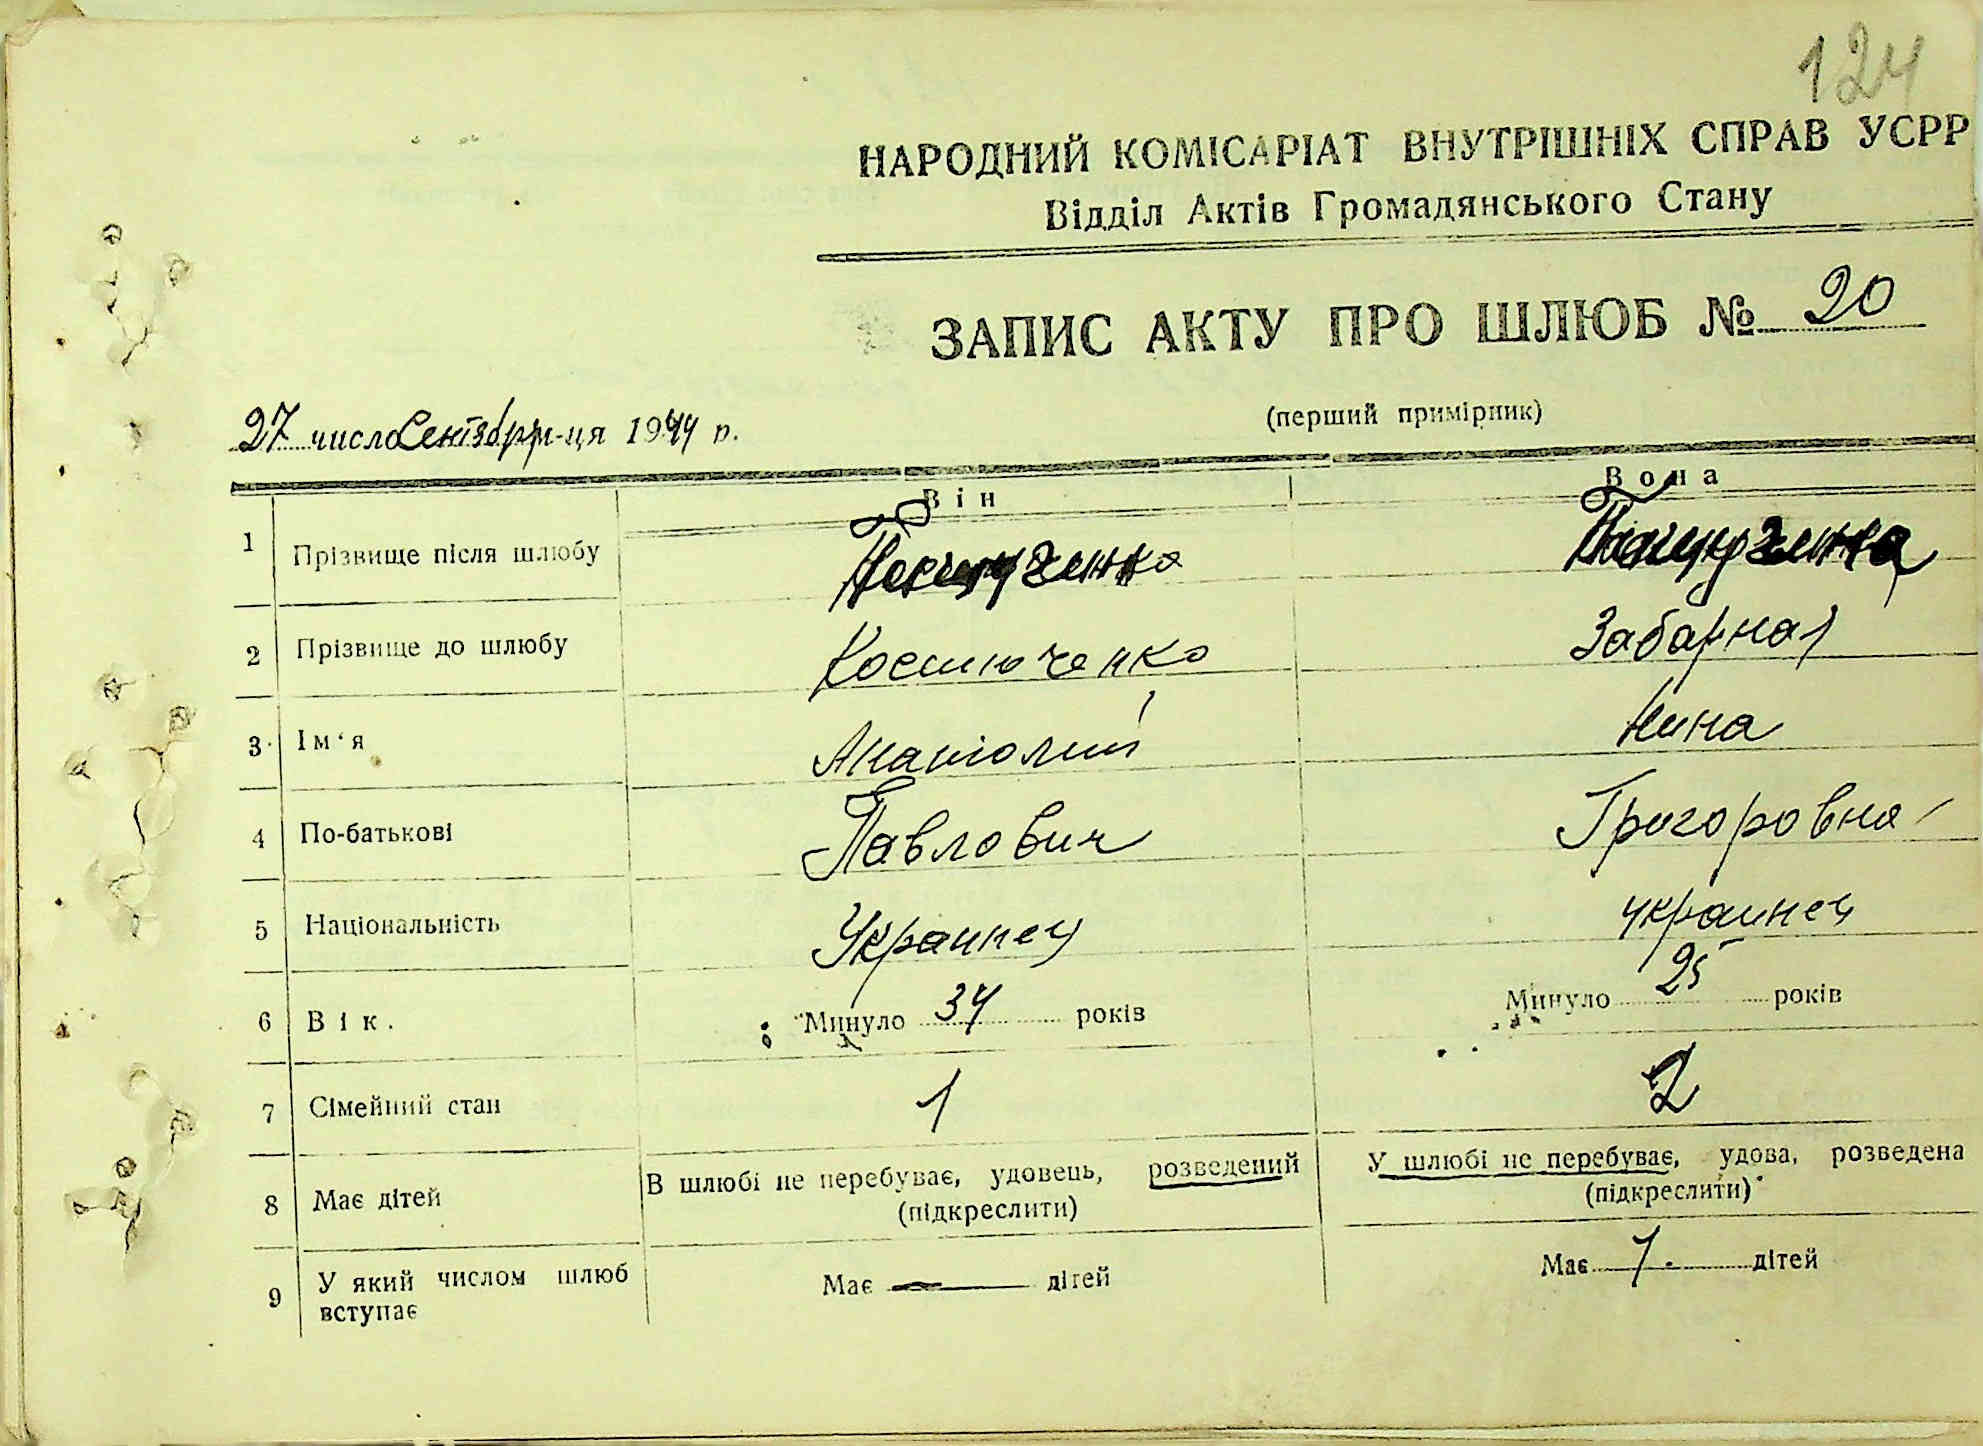 124
НАРОДНИЙ КОМІСАРІАТ ВНУТРІШНІХ СПРАВ УСРР
Відділ Актів Громадянського Стану
ЗАПИС АКТУ ПРО ШЛЮБ № 20
(перший примірник)
27 число Сентября м-ця 1944 р.
Він Вона
1 Прізвище після шлюбу
2 Прізвище до шлюбу Костюченко Забарная
3 Ім'я Анатолий Нина
4 По-батькові Павлович Григоровна
5 Національність Украинец украинец
6 Вік. Минуло 34 років Минуло 25 років
7 Сімейний стан 1 2
8 Має дітей В шлюбі не перебуває, удовець, розведений У шлюбі не перебуває, удова, розведена
(підкреслити) (підкреслити)
9 У який числом шлюб Має — дітей Має 1 дітей
вступає